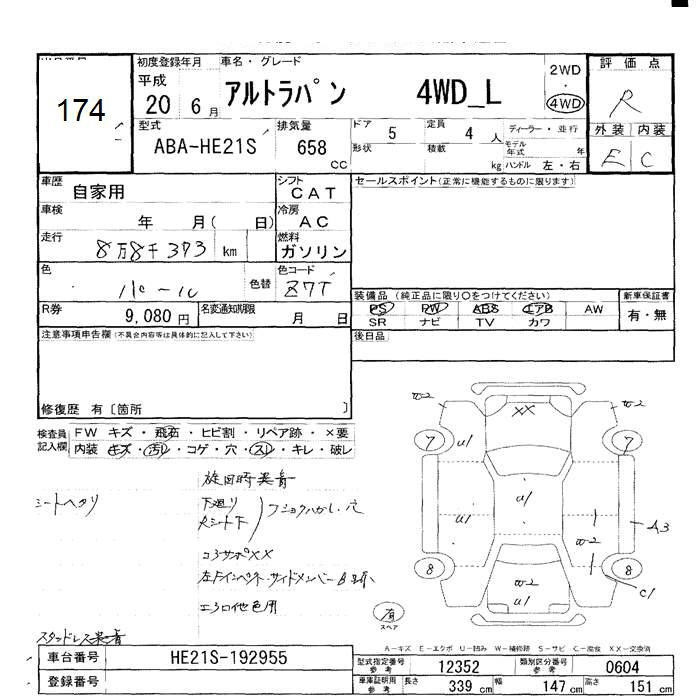 174
初度登録年月
車名・グレード
平成
20 6月
アルトラパン 4WD_L
2WD
・
4WD
評価点
R
型式
ABA-HE21S
排気量
658
CC
ドア
5
形状
定員
4 人
積載
kg
ディーラー・並行
モデル年式 年
ハンドル 左・右
外装 内装
E C
車歴
自家用
シフト
CAT
セールスポイント(正常に機能するものに限ります)
車検
年 月( 日)
冷房
AC
走行
8万8千373 km
燃料
ガソリン
色
パール
色替
色コード
Z7T
R券
9,080 円
名変通知期限
月 日
装備品 (純正品に限り○をつけてください)
PS PW ABS エアB AW
SR ナビ TV カワ
新車保証書
有・無
注意事項申告欄(不具合内容等は具体的に記入して下さい)
後日品
修復歴 有〔箇所 〕
検査員記入欄
FW キズ・飛石・ヒビ割・リペア跡・×要
内装 キズ・汚レ・コゲ・穴・スレ・キレ・破レ
シートヘタリ
旋回時異音
下廻り
コアサポXX
左Fインペネ・サイドメンバー
エンジン他色用
スタッドレス異音
XX
W2
W2
7
7
U1
U1
U1
U1
W2
A3
8
8
C1
W2
U1
有
スペア
A-キズ E-エクボ U-凹み W-補修跡 S-サビ C-腐食 XX-交換済
車台番号
HE21S-192955
登録番号
型式指定番号参考
12352
類別区分番号参考
0604
車庫証明用参考
長さ 339 cm
幅 147 cm
高さ 151 cm